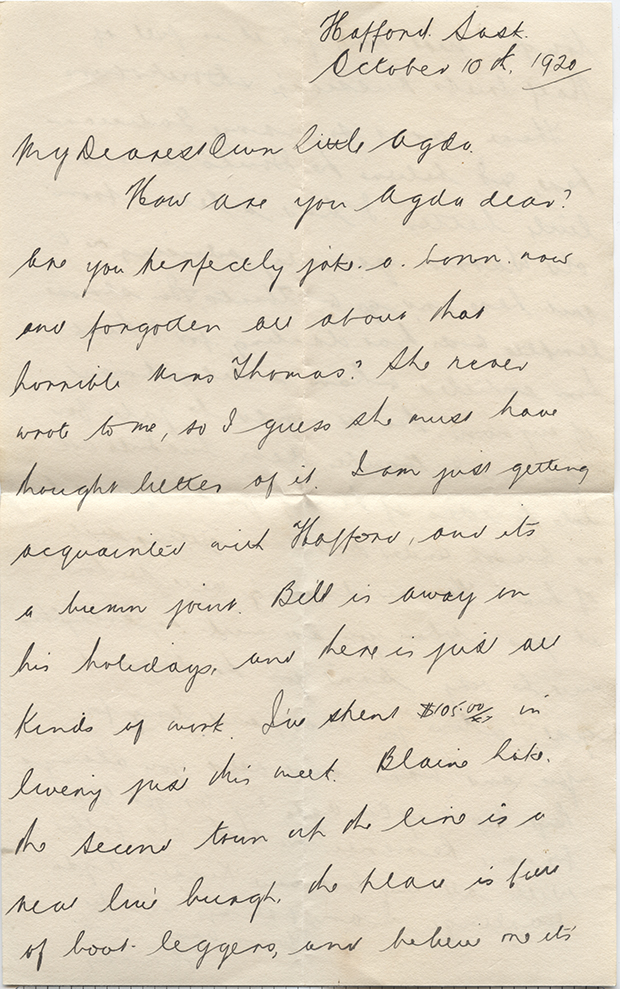 Hafford. Sask.
October 10th, 1920
My Dearest Own Little Agda.
How are you Agda dear?
Are you perfectly joke. a. bonn. now
and forgotten all about that
horrible Mrs Thomas? She never
wrote to me, so I guess she must have
thought better of it. I am just getting
acquainted with Hafford, and its
a bumm joint. Bill is away on
his holidays, and there is just all
kinds of work. I've spent $105.00 in
livery just this week. Blaine Lake.
the second town up the line is a
real live burgh, the place is full
of boot-leggers, and believe me its